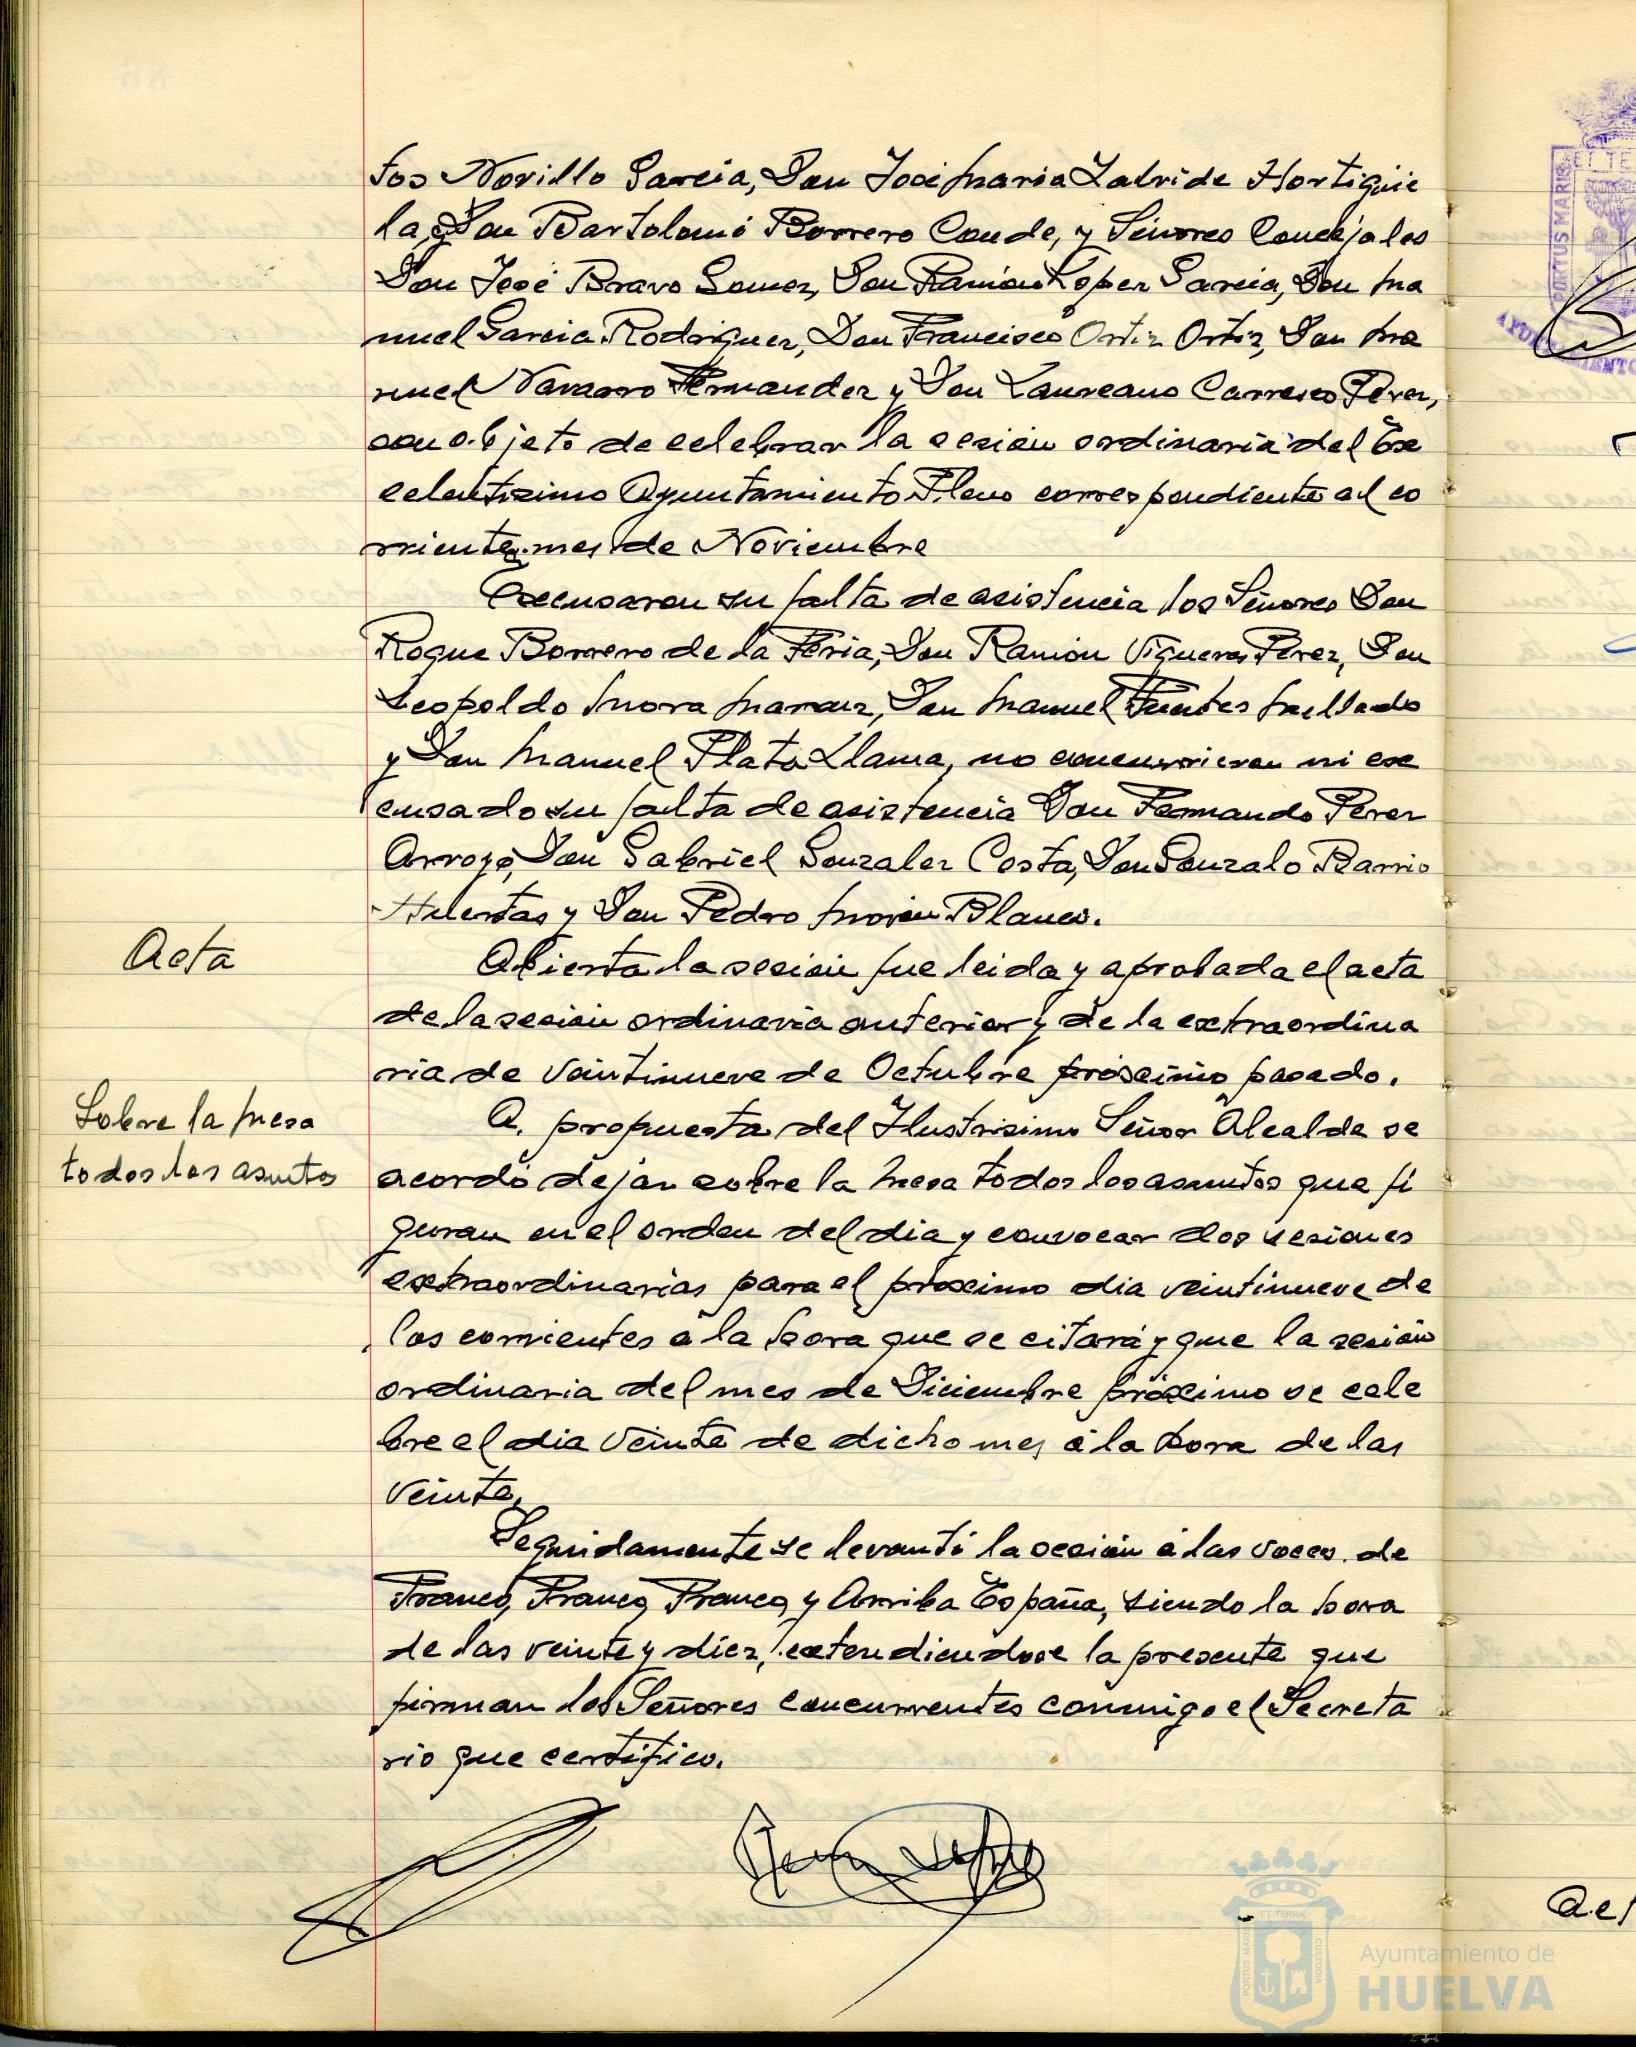 tos Novillo Garcia, Don José Maria Zalvide Hortigüe
la, Don Bartolomé Borrero Conde, y Señores Concejales
Don José Bravo Gomez, Don Ramón Lopez Garcia, Don Ma
nuel Garcia Rodriguez, Don Francisco Ortiz Ortiz, Don Ma
nuel Navarro Fernandez y Don Laureano Carrasco Pérez,
con objeto de celebrar la sesión ordinaria del Ex
celentisimo Ayuntamiento Pleno correspondiente al co
rriente mes de Noviembre
Excusaron su falta de asistencia los Señores Don
Roque Borrero de la Feria, Don Ramón Viguera Pérez, Don
Leopoldo Mora Don Manuel Fuentes Mellado
y Don Manuel Plata Llama, no concurrieron ni ex
cusado su falta de asistencia Don Fernando Perez
Arroyo, Don Gabriel Gonzalez Costa, Don Gonzalo Barrio
Huertas y Don Pedro Blanco.
Acta
Abierta la sesión fue leida y aprobada el acta
de la sesión ordinaria anterior y de la extraordina
ria de veintinueve de Octubre próximo pasado.
Sobre la mesa
todos los asuntos
A propuesta del Ilustrisimo Señor Alcalde se
acordó dejar sobre la mesa todos los asuntos que fi
guran en el orden del dia y convocar dos sesiones
extraordinarias para el próximo dia veintinueve de
los corrientes a la hora que se citará y que la sesión
ordinaria del mes de Diciembre próximo se cele
bre el dia veinte de dicho mes a la hora de las
veinte.
Seguidamente se levantó la sesión a las voces de
Franco, Franco, Franco y Arriba España, siendo la hora
de las veinte y diez, extendiendose la presente que
firman los Señores concurrentes conmigo el Secreta
rio que certifico.
Ayuntamiento de
HUELVA